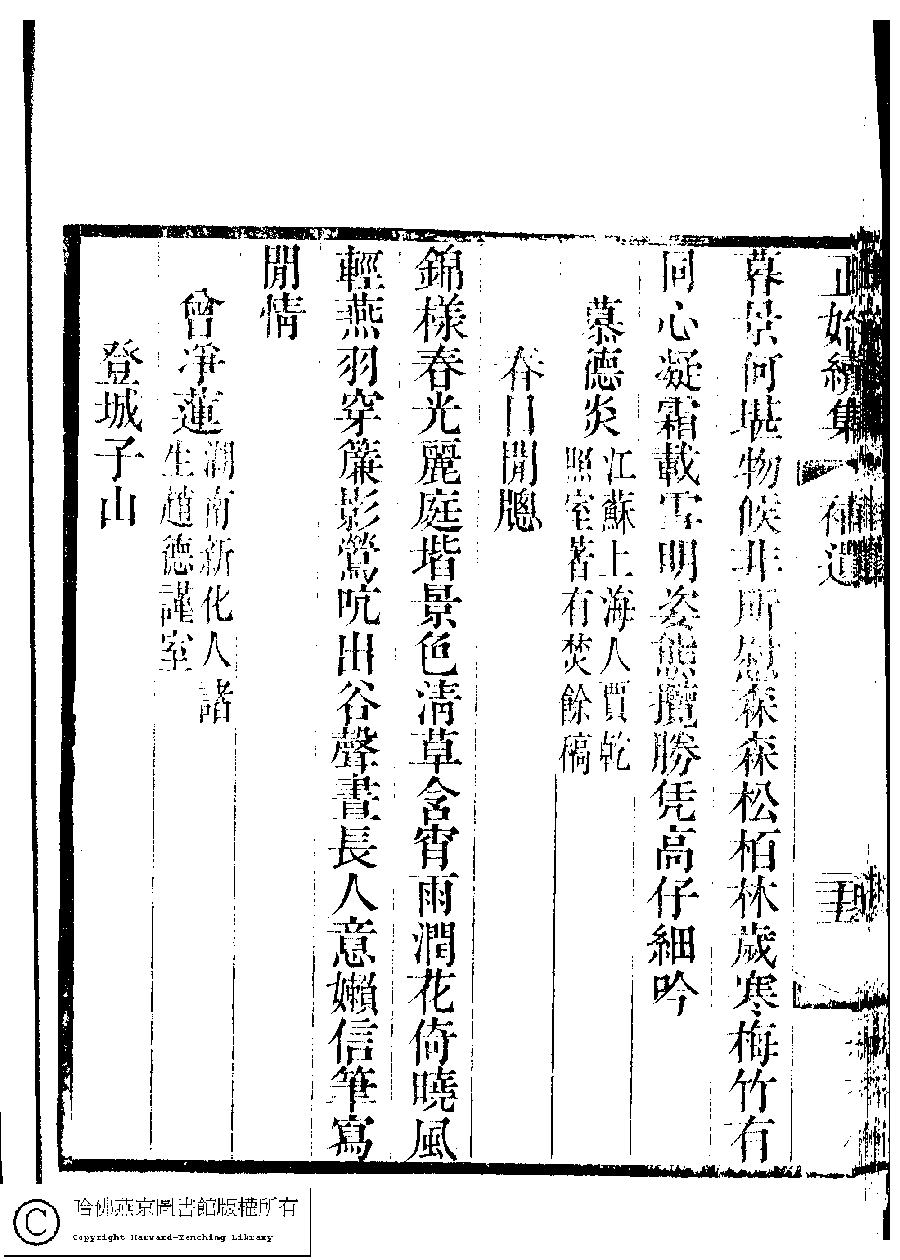 正始續集 補遺
暮景何堪物候非所慰森森松栢林歲寒梅竹有
同心凝霜載雪明姿態攬勝凭高仔細吟
慕德炎 江蘇上海人賈乾
照室著有焚餘稿
春日閒牕
錦様春光麗庭堦景色淸草含宵雨潤花倚曉風
輕燕羽穿簾影鶯吭出谷聲晝長人意嬾信筆寫
閒情
曾淨蓮 湖南新化人諸
生趙德謹室
登城子山
哈佛燕京圖書館版權所有
Copyright Harvard-Yenching Library